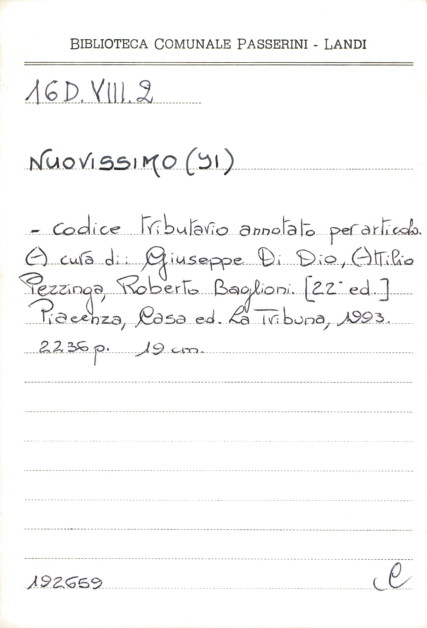 BIBLIOTECA COMUNALE PASSERINI - LANDI
16D.VIII.2
NUOVISSIMO (Il)
- codice tributario annotato per articolo.
A cura di: Giuseppe Di Dio, Attilio
Pezzinga, Roberto Baglioni. [22ª ed.]
Piacenza, Casa ed. La Tribuna, 1993.
2236 p. 19 cm.
192669
C